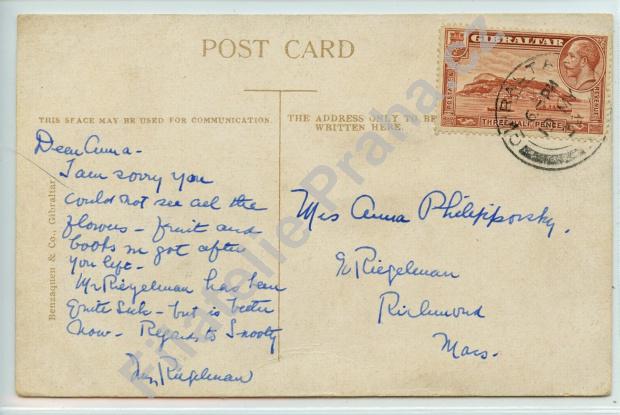 POST CARD
GIBRALTAR
POSTAGE
REVENUE
THREE HALF PENCE
GIBRALTAR
THIS SPACE MAY BE USED FOR COMMUNICATION.
THE ADDRESS ONLY TO BE
WRITTEN HERE.
Benzaquen & Co., Gibraltar
Dear Anna-
I am sorry you
could not see all the
flowers - fruit and
books we got after
you left -
Mr Riegelman has been
quite sick - but is better
now - Regards to Snooty
Riegelman
Miss Anna Philipporsky.
c/o Riegelman
Richmond
Mass.
Filatelie-Praha.cz